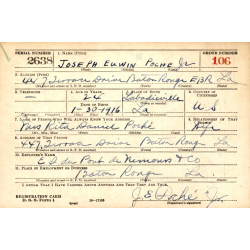 SERIAL NUMBER 1. NAME (Print) ORDER NUMBER
2638 JOSEPH EDWIN POCHE Jr 106
2. ADDRESS (Print)
447 Drive Baton Rouge EBR La
3. TELEPHONE 4. AGE IN YEARS 5. PLACE OF BIRTH 6. COUNTRY OF CITIZENSHIP
24 Labadieville
DATE OF BIRTH
1-30-1916 La U S
7. NAME OF PERSON WHO WILL ALWAYS KNOW YOUR ADDRESS 8. RELATIONSHIP OF THAT PERSON
Mrs Rita Poché Wife
9. ADDRESS OF THAT PERSON
447 Drive Baton Rouge La
10. EMPLOYER'S NAME
E I du Pont de Nemours & Co
11. PLACE OF EMPLOYMENT OR BUSINESS
Baton Rouge La
I AFFIRM THAT I HAVE VERIFIED ABOVE ANSWERS AND THAT THEY ARE TRUE.
REGISTRATION CARD
D. S. S. Form 1
J E Poché Jr